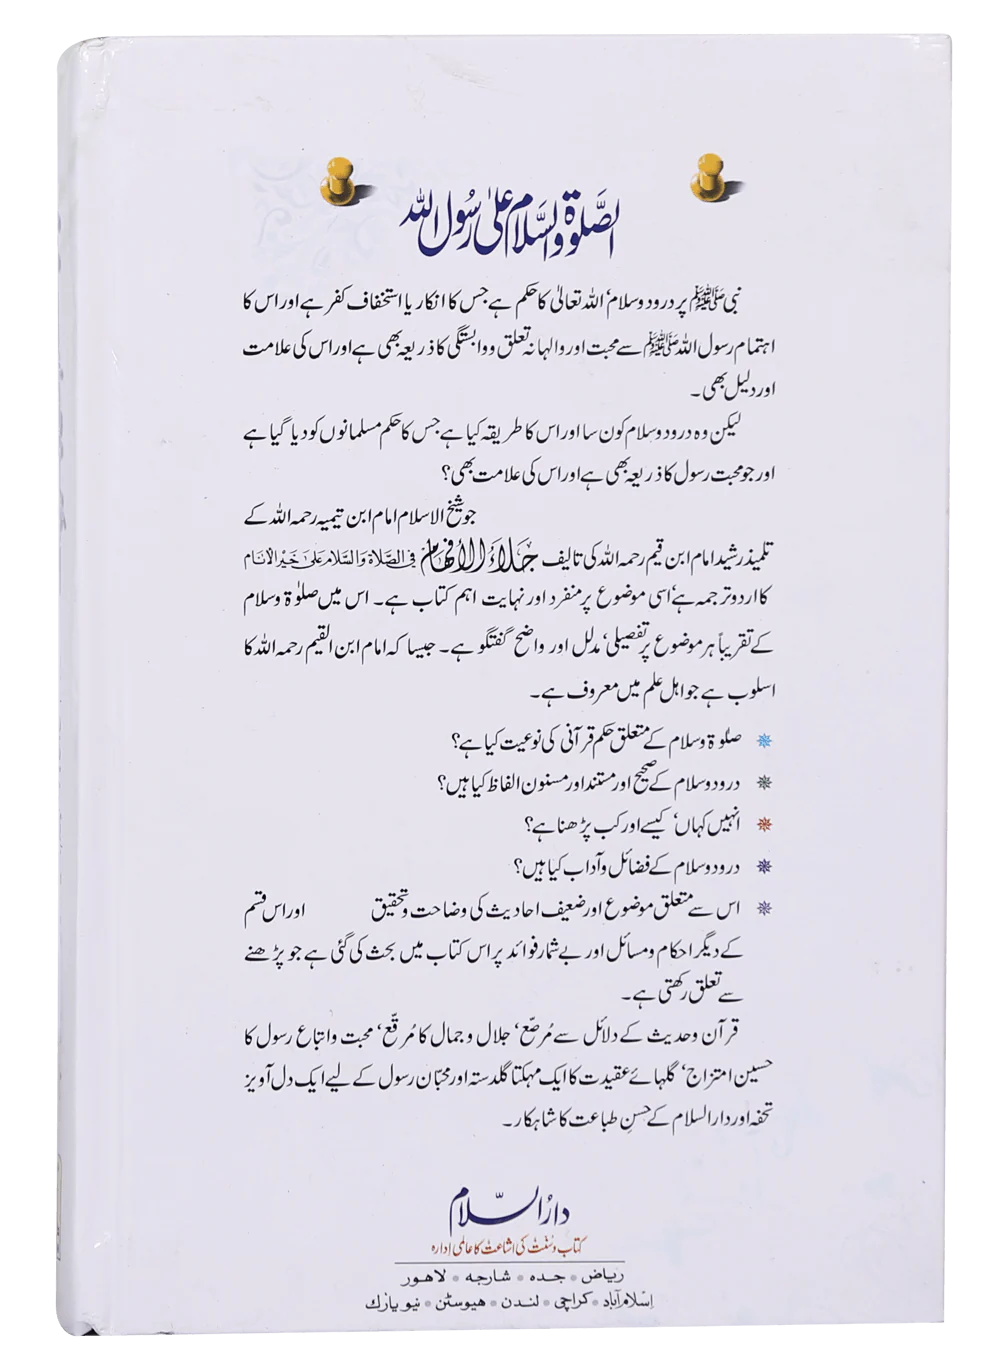 الصلوٰۃ والسلام علیٰ رسول اللہ
نبی ﷺ پر درود وسلام، اللہ تعالیٰ کا حکم ہے جس کا انکار یا استخفاف کفر ہے اور اس کا
اہتمام رسول اللہ ﷺ سے محبت اور والہانہ تعلق ووابستگی کا ذریعہ بھی ہے اور اس کی علامت
اور دلیل بھی۔
لیکن وہ درود وسلام کون سا اور اس کا طریقہ کیا ہے جس کا حکم مسلمانوں کو دیا گیا ہے
اور جو محبت رسول کا ذریعہ بھی ہے اور اس کی علامت بھی؟
جو شیخ الاسلام امام ابن تیمیہ رحمہ اللہ کے
تلمیذ رشید امام ابن قیم رحمہ اللہ کی تالیف جلاء الأفہام فی الصلاۃ والسلام علیٰ خیر الانام
کا اردو ترجمہ ہے، اسی موضوع پر منفرد اور نہایت اہم کتاب ہے۔ اس میں صلوٰۃ وسلام
کے تقریباً ہر موضوع پر تفصیلی، مدلل اور واضح گفتگو ہے۔ جیسا کہ امام ابن القیم رحمہ اللہ کا
اسلوب ہے جو اہل علم میں معروف ہے۔
صلوٰۃ وسلام کے متعلق حکم قرآنی کی نوعیت کیا ہے؟
درود وسلام کے صحیح اور مستند اور مسنون الفاظ کیا ہیں؟
انہیں کہاں، کیسے اور کب پڑھنا ہے؟
درود وسلام کے فضائل وآداب کیا ہیں؟
اس سے متعلق موضوع اور ضعیف احادیث کی وضاحت وتحقیق اور اس قسم
کے دیگر احکام ومسائل اور بے شمار فوائد پر اس کتاب میں بحث کی گئی ہے جو پڑھنے
سے تعلق رکھتی ہے۔
قرآن وحدیث کے دلائل سے مُرصّع، جلال وجمال کا مُرقّع، محبت واتباع رسول کا
حسین امتزاج، گلہائے عقیدت کا ایک مہکتا گلدستہ اور محبّان رسول کے لیے ایک دل آویز
تحفہ اور دارالسلام کے حسنِ طباعت کا شاہکار۔
دارالسلام
کتاب وسنت کی اشاعت کا عالمی ادارہ
ریاض • جدہ • شارجہ • لاہور
اسلام آباد • کراچی • لندن • ہیوسٹن • نیو یارک